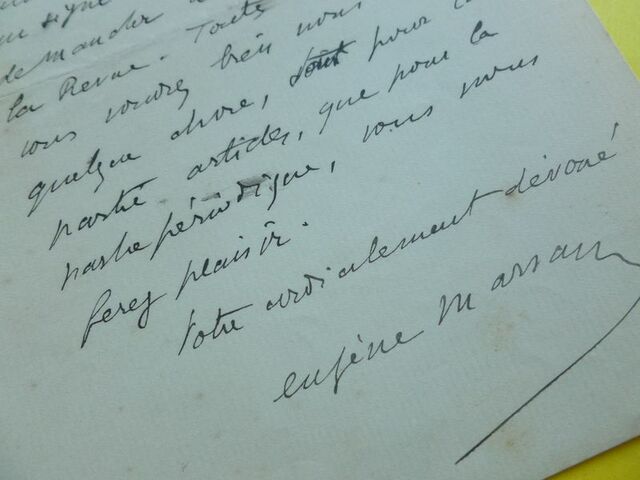 un signe
demander
la Revue. Toute
vous voudrez bien nous
quelque chose, soit pour la
partie articles, que pour la
partie périodique, vous nous
ferez plaisir.
Votre cordialement dévoué
eugène Marsan